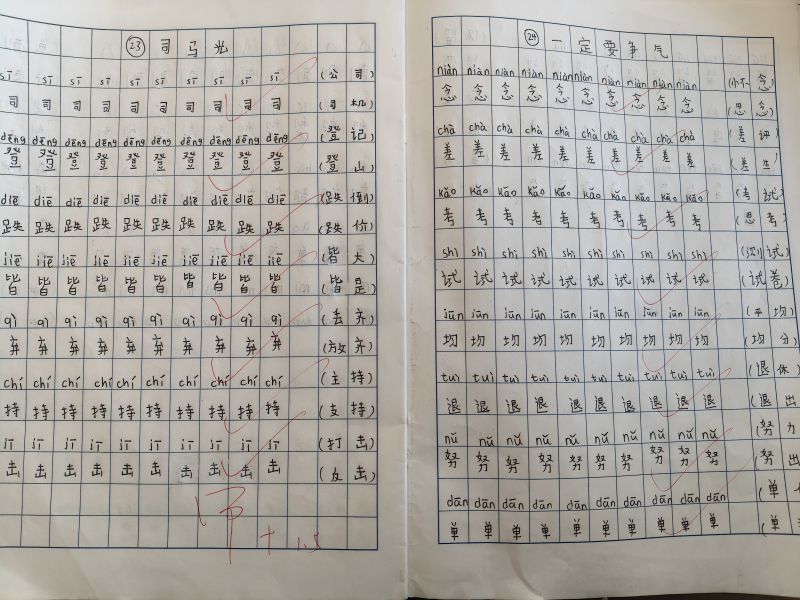 23 司马光
sī sī sī sī sī sī sī sī sī (公司)
司 司 司 司 司 司 司 司 司 (司机)
dēng dēng dēng dēng dēng dēng dēng dēng dēng dēng (登记)
登 登 登 登 登 登 登 登 登 (登山)
diē diē diē diē diē diē diē diē diē diē (跌倒)
跌 跌 跌 跌 跌 跌 跌 跌 跌 跌 (跌价)
jiē jiē jiē jiē jiē jiē jiē jiē jiē jiē (皆大)
皆 皆 皆 皆 皆 皆 皆 皆 皆 皆 (皆是)
qì qì qì qì qì qì qì qì qì (丢弃)
弃 弃 弃 弃 弃 弃 弃 弃 弃 (放弃)
chí chí chí chí chí chí chí chí chí chí (主持)
持 持 持 持 持 持 持 持 持 持 (支持)
jī jī jī jī jī jī jī jī jī (打击)
击 击 击 击 击 击 击 击 击 击 (反击)
24 一定要争气
niàn niàn niàn niàn niàn niàn niàn niàn niàn (念)
念 念 念 念 念 念 念 念 念 (思念)
chà chà chà chà chà chà chà chà chà (差评)
差 差 差 差 差 差 差 差 差 (差生)
kǎo kǎo kǎo kǎo kǎo kǎo kǎo kǎo kǎo (考试)
考 考 考 考 考 考 考 考 考 (思考)
shì shì shì shì shì shì shì shì shì (测试)
试 试 试 试 试 试 试 试 试 (试卷)
jūn jūn jūn jūn jūn jūn jūn jūn jūn (平均)
均 均 均 均 均 均 均 均 均 (均分)
tuì tuì tuì tuì tuì tuì tuì tuì tuì (退休)
退 退 退 退 退 退 退 退 退 (退出)
nǔ nǔ nǔ nǔ nǔ nǔ nǔ nǔ nǔ (努力)
努 努 努 努 努 努 努 努 努 (努出)
dān dān dān dān dān dān dān dān dān (单
单 单 单 单 单 单 单 单 单 (单